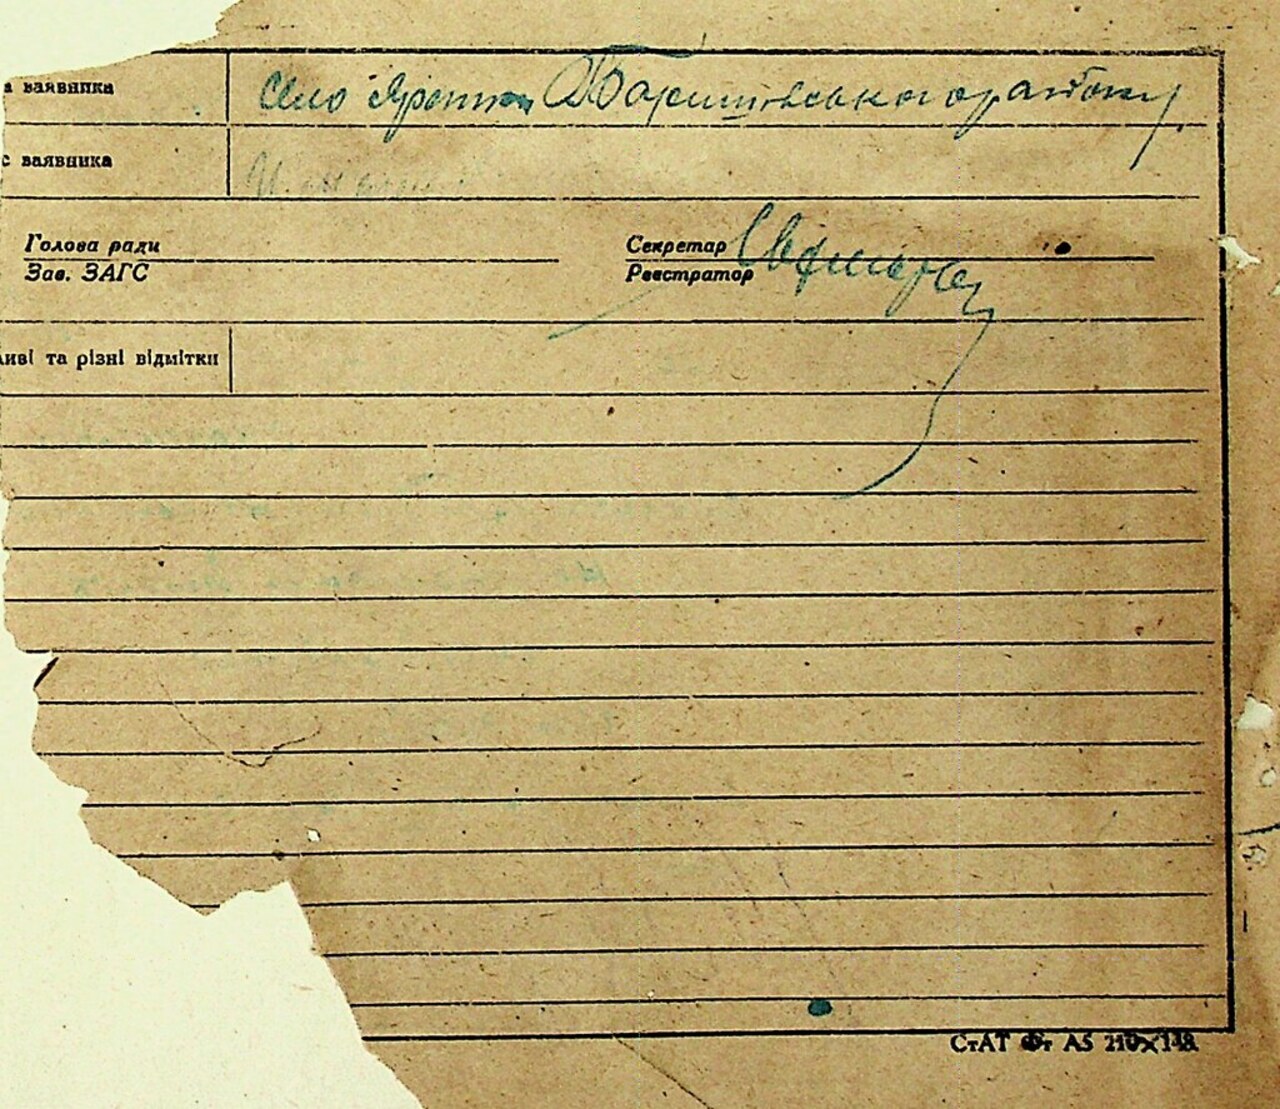 а заявника Село Баришівського району
с заявника
Голова ради Секретар
Зав. ЗАГС Реєстратор
иві та різні відмітки
СтАТ Фт А5 210×148